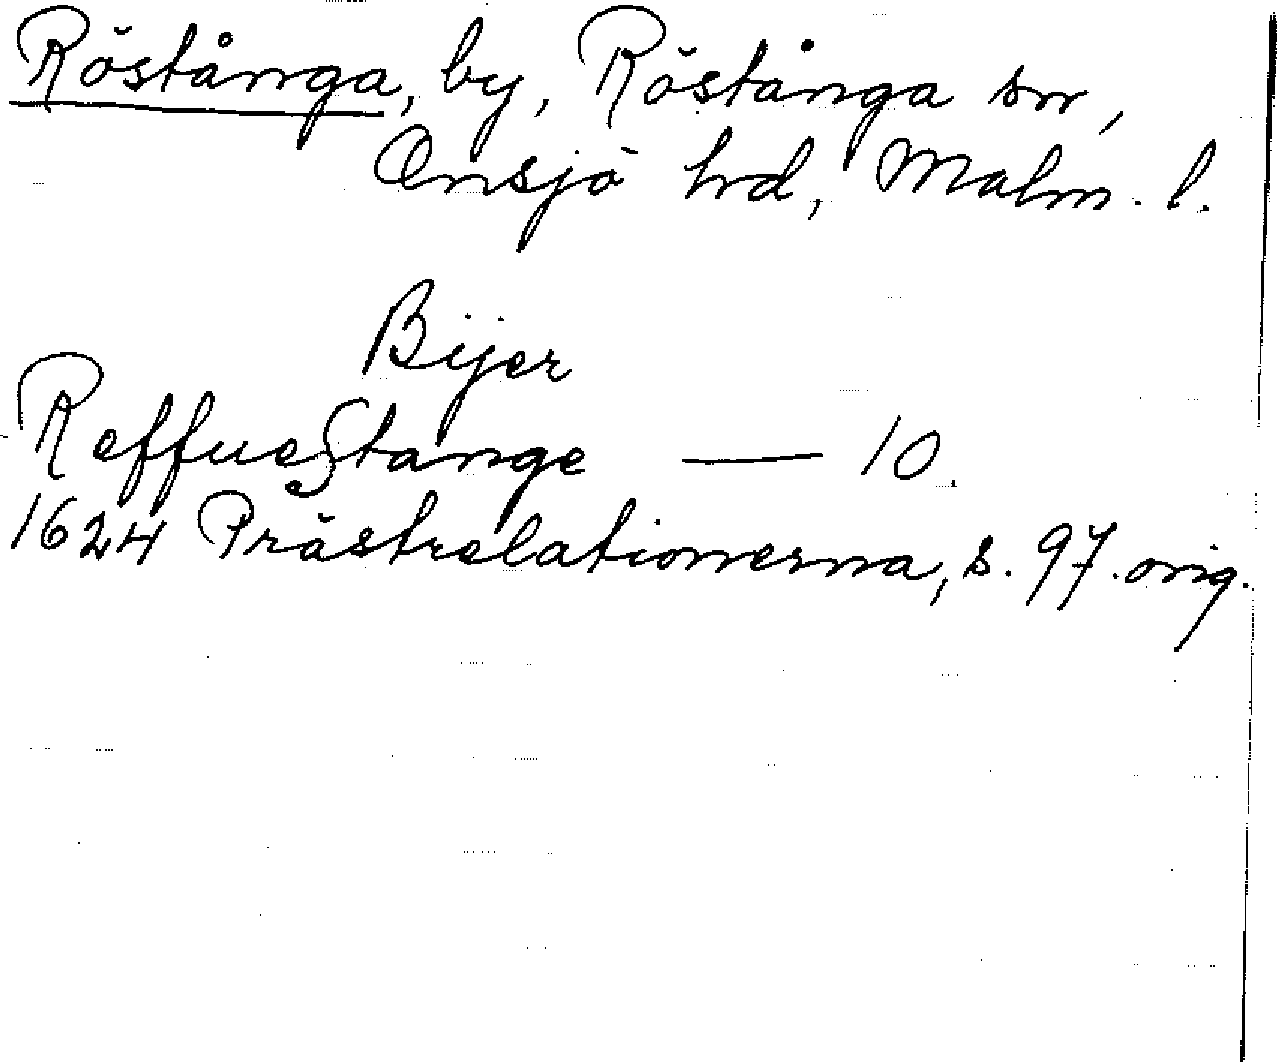 Röstånga, by, Röstånga sn,
Onsjö hd, Malm. l.
Bijer
ReffueStange — 10.
1624 Prästrelationerna, s. 97. orig.